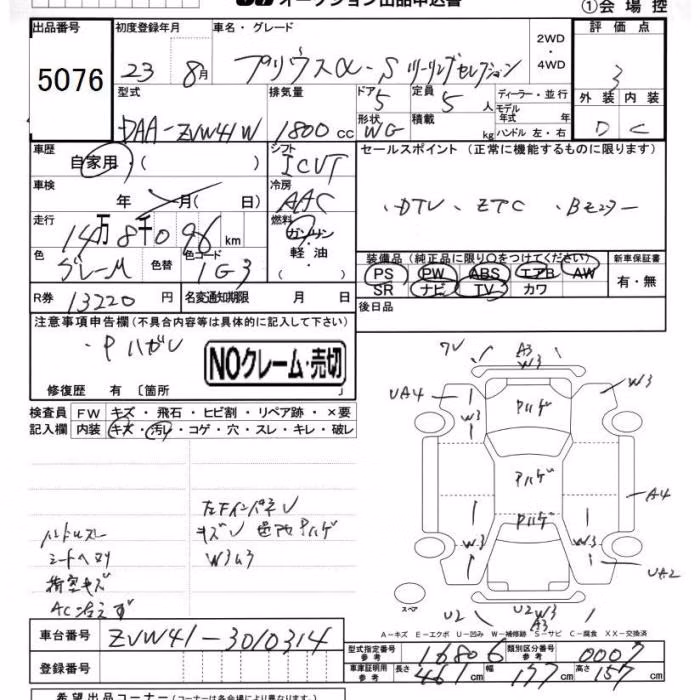 オークション出品申込書
①会場控
出品番号 初度登録年月 車名・グレード 2WD・4WD 評価点
5076 23 8月 プリウスα-S ツーリングセレクション 3
型式 排気量 ドア 5 定員 5人 ディーラー・並行 外装 内装
DAA-ZVW41W 1800cc 形状 WG 積載 kg モデル年式 年 ハンドル 左・右 D C
車歴 自家用・( ) シフト ICVT セールスポイント (正常に機能するものに限ります)
車検 年 月( 日) 冷房 AAC ・DTV ・ETC
走行 14万8千096km 燃料 ガソリン・軽油・( )
装備品(純正品に限り○をつけてください) 新車保証書
色 グレーM 色替 色コード 1G3 PS PW ABS エアB AW 有・無
SR ナビ TV カワ
R券 13220円 名変通知期限 月 日 後日品
注意事項申告欄(不具合内容等は具体的に記入して下さい)
・Pハガレ
NOクレーム・売切
修復歴 有 〔箇所 〕
検査員 FW キズ・飛石・ヒビ割・リペア跡・×要
記入欄 内装 キズ・汚レ・コゲ・穴・スレ・キレ・破レ
ハンドルスレ
シートヘタリ
荷室キズ
AC冷えず
キズ
W3
A3
W3
UA4
W3
W3
Pハゲ
Pハゲ
Pハゲ
A4
W3
W3
UA2
スペア
U2
U2 W3
A3
A－キズ E－エクボ U－凹み W－補修跡 S－サビ C－腐食 XX－交換済
車台番号 ZVW41-3010314
型式指定番号 参考 16806 類別区分番号 参考 0007
登録番号
車庫証明用 参考 長さ 461cm 幅 177cm 高さ 157cm
希望出品コーナー (コーナーは各会場により異なります)